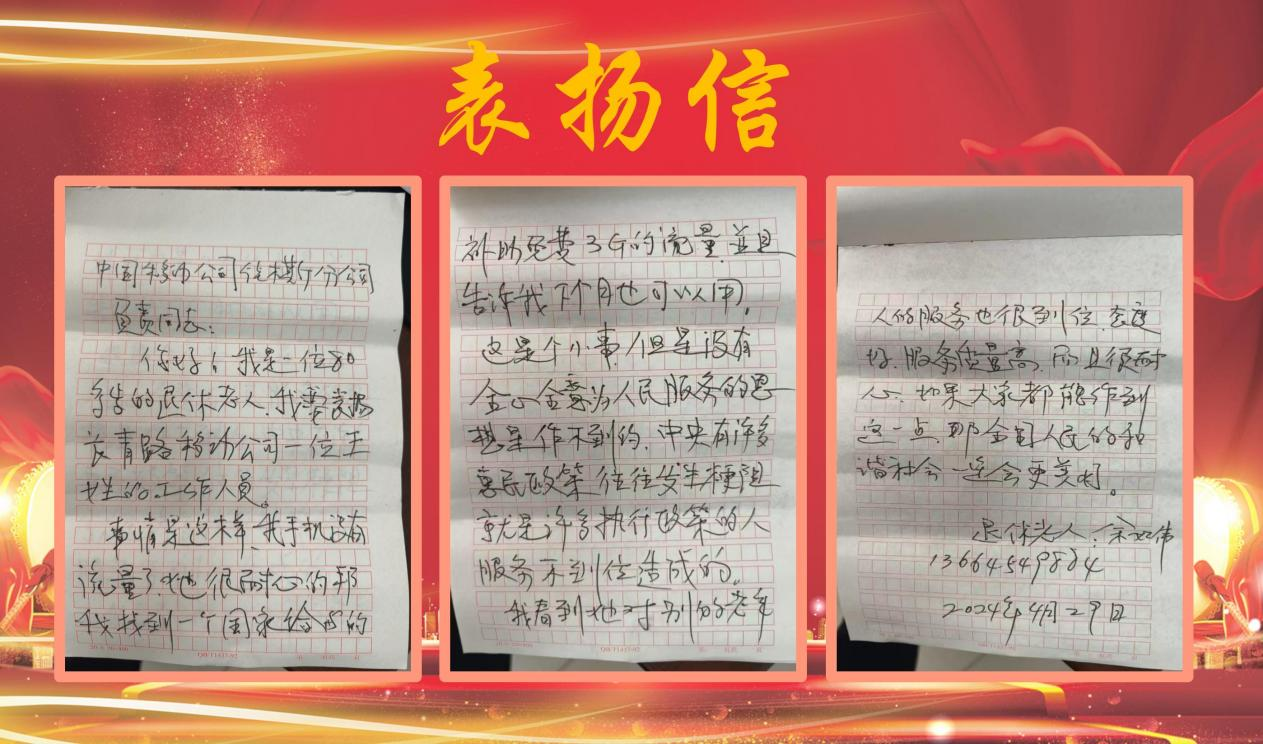 表扬信
中国移动公司佳木斯分公司
负责同志：
你好！我是一位80
多岁的退休老人，我要表扬
长青路移动公司一位王
女性的工作人员。
事情是这样，我手机没有
流量了，她很耐心的帮
我找到一个国家给的
补助免费3G的流量，并且
告诉我下个月也可以用。
这是个小事，但是没有
全心全意为人民服务的思
想是作不到的，中央有许多
惠民政策往往发生梗阻
就是许多执行政策的人
服务不到位造成的。
我看到她对别的老年
人的服务也很到位，态度
好，服务质量高，而且很耐
心，如果大家都能作到
这一点，那全国人民的和
谐社会一定会更美好。
退休老人：
13664549884
2024年4月29日